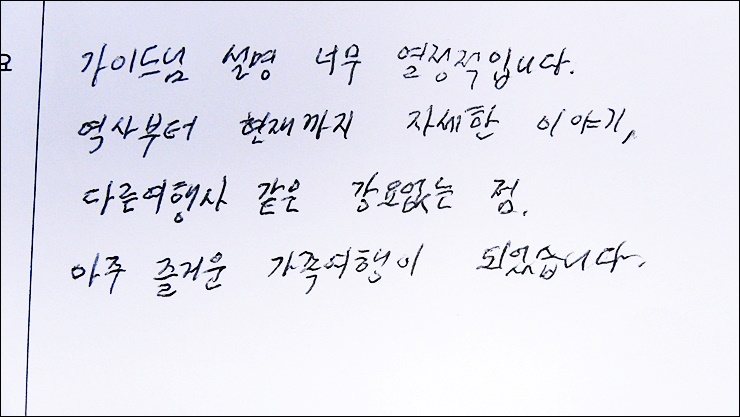 요
가이드님 설명 너무 열정적입니다.
역사부터 현재까지 자세한 이야기,
다른여행사 같은 강요없는 점.
아주 즐거운 가족여행이 되었습니다.